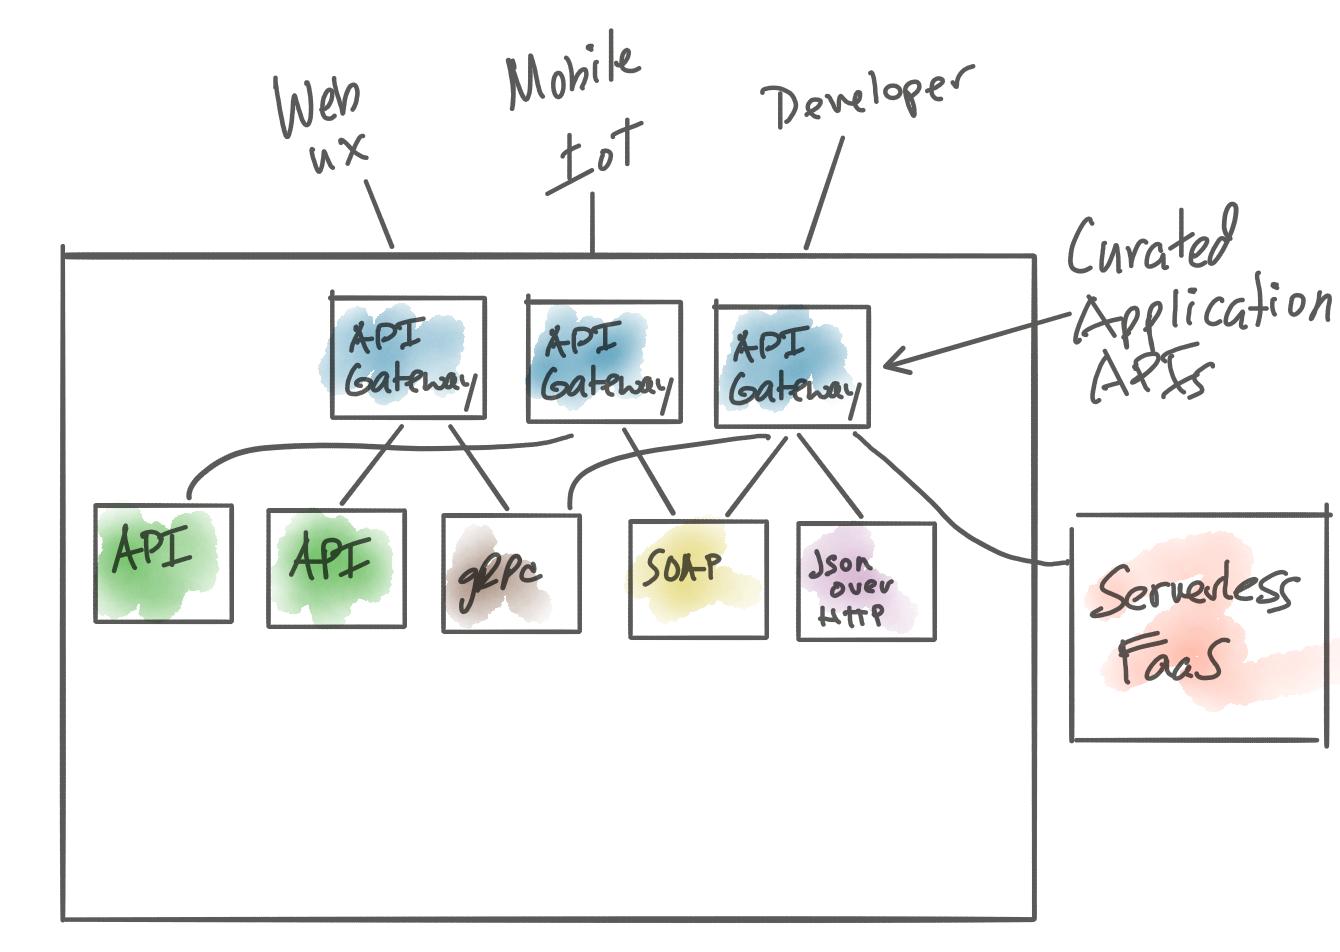 Web
UX
Mobile
IoT
Developer
Curated
Application
APIs
API
Gateway
API
Gateway
API
Gateway
API
API
gRPC
SOAP
Json
over
HTTP
Serverless
FaaS